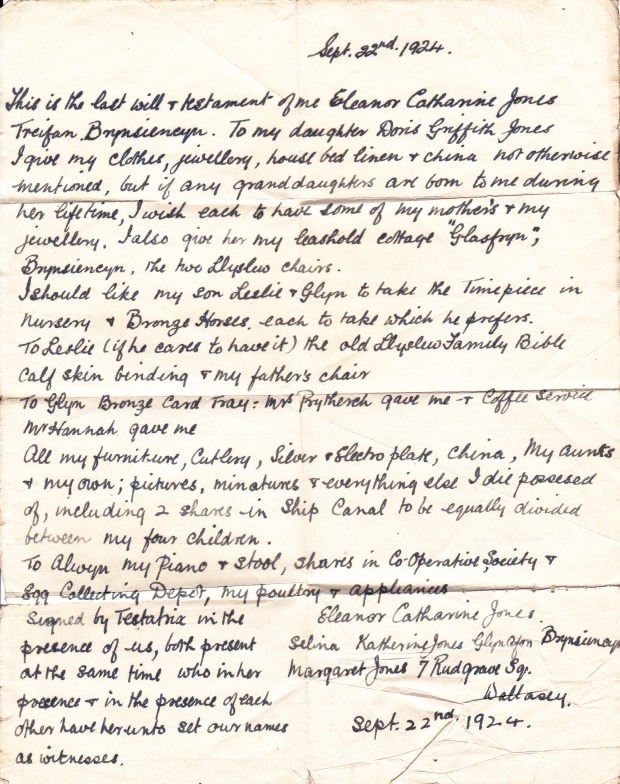 Sept. 22nd. 1924.
This is the last will & testament of me Eleanor Catharine Jones
Treifan Brynsiencyn. To my daughter Doris Griffith Jones
I give my clothes, jewellery, house bed linen & china not otherwise
mentioned, but if any granddaughters are born to me during
her lifetime, I wish each to have some of my mother's & my
jewellery. I also give her my leashold cottage "Glasfryn",
Brynsiencyn, the two Llyslew chairs.
I should like my son Leslie & Glyn to take the Timepiece in
Nursery & Bronze Horses. each to take which he prefers.
To Leslie (if he cares to have it) the old Llyslew Family Bible
Calf skin binding & my father's chair
To Glyn Bronze Card Tray: Mrs Prytherch gave me & Coffee Service
Mr Hannah gave me
All my furniture, Cutlery, Silver & Electro plate, China, My aunts
& my own; pictures, minatures & everything else I die possesed
of, including 2 shares in Ship Canal to be equally divided
between my four children.
To Alwyn my Piano & Stool, shares in Co-Operative Society &
Egg Collecting Depot, my poultry & appliances
Signed by Testatrix in the
presence of us, both present
at the same time who in her
presence & in the presence of each
other have hereunto set our names
as witnesses.
Eleanor Catharine Jones.
Selina Katherine Jones Glynafon Brynsiencyn
Margaret Jones 7 Rudgrave Sq.
Wallasey.
Sept. 22nd. 1924.